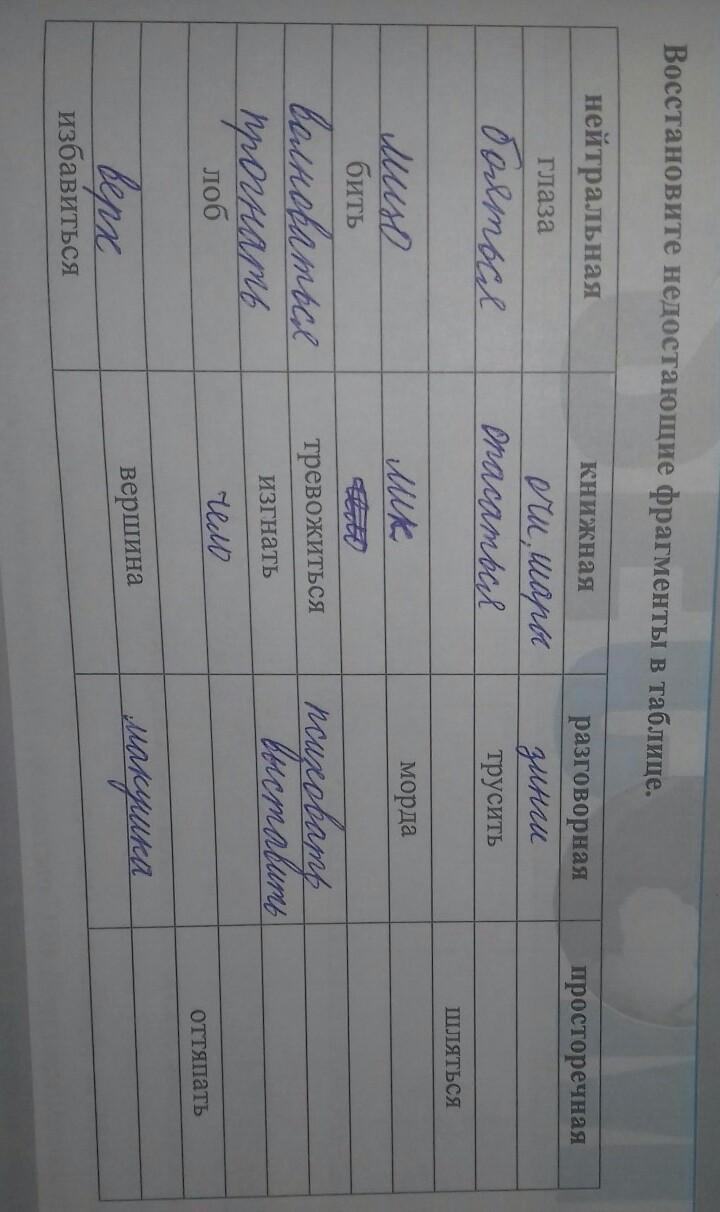 Восстановите недостающие фрагменты в таблице.
нейтральная книжная разговорная просторечная
глаза очи, шары зиги
бояться опасаться трусить
шляться
лицо лик морда
бить
волноваться тревожиться психовать
прогнать изгнать выставить
лоб чело
оттяпать
верх вершина макушка
избавиться